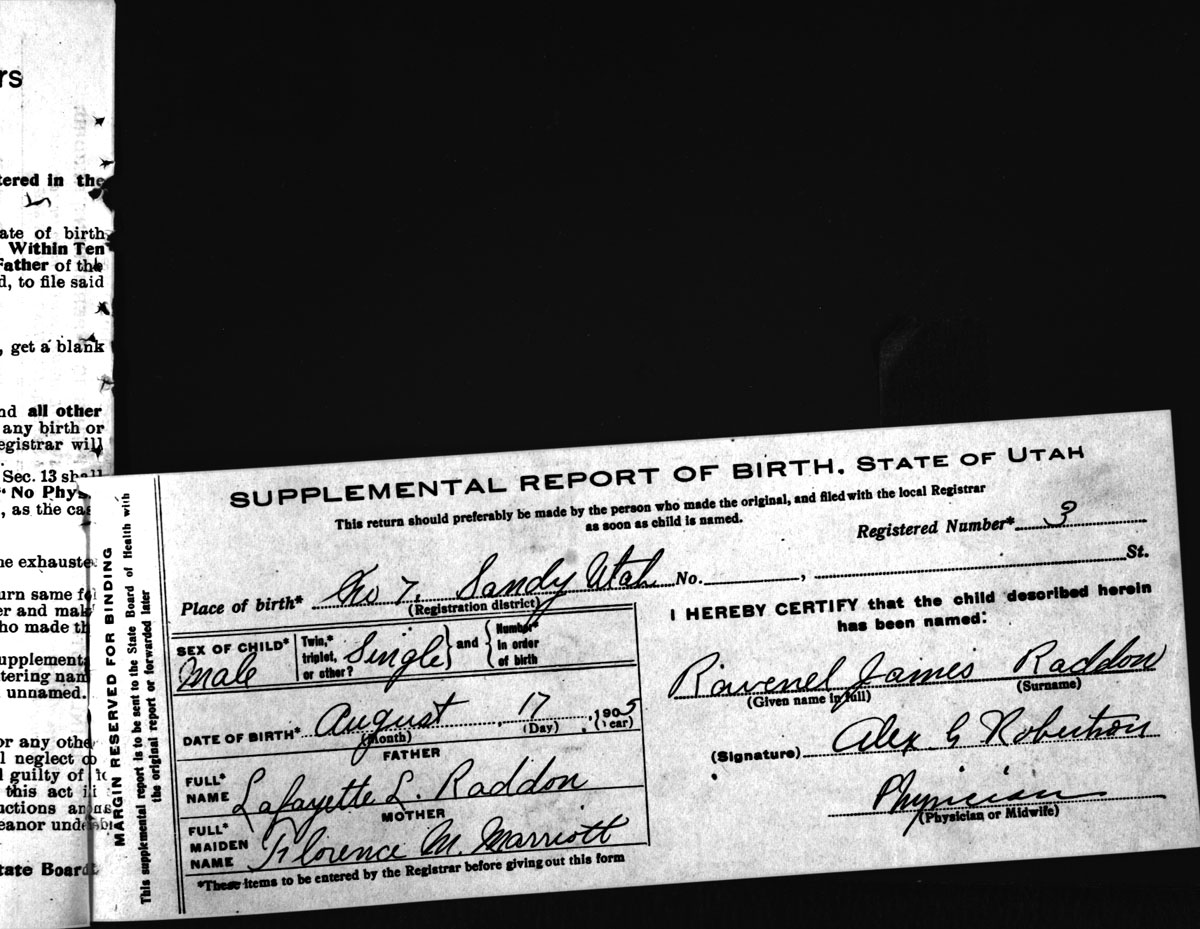 rs
tered in the
ate of birth
Within Ten
Father of the
d, to file said
, get a blank
nd all other
any birth or
egistrar will
Sec. 13 shall
"No Phys
, as the cas
ne exhauste
urn same fo
er and mak
ho made th
upplementa
tering nam
unnamed.
or any othe
l neglect o
guilty of
this act
uctions an
eanor unde
tate Board
MARGIN RESERVED FOR BINDING
This supplemental report is to be sent to the State Board of Health with
the original report or forwarded later
SUPPLEMENTAL REPORT OF BIRTH. STATE OF UTAH
This return should preferably be made by the person who made the original, and filed with the local Registrar
as soon as child is named.
Registered Number* 3
Place of birth* No 7, Sandy Utah No. , St.
(Registration district)
SEX OF CHILD* Male
Twin,* triplet, or other? Single } and { Number* in order of birth
DATE OF BIRTH* August, 17, 1905
(Month) (Day) (Year)
FATHER
FULL* NAME Lafayette L. Raddon
MOTHER
FULL* MAIDEN NAME Florence M. Marriott
*These items to be entered by the Registrar before giving out this form
I HEREBY CERTIFY that the child described herein
has been named:
Ravenel James Raddon
(Given name in full) (Surname)
(Signature) Alex G Robertson
Physician
(Physician or Midwife)